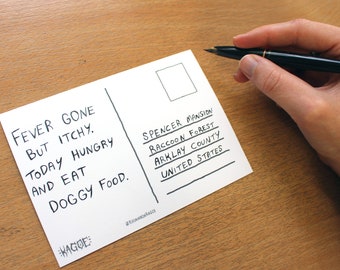 FEVER GONE
BUT ITCHY.
TODAY HUNGRY
AND EAT
DOGGY FOOD.
SPENCER MANSION
RACCOON FOREST
ARKLAY COUNTY
UNITED STATES